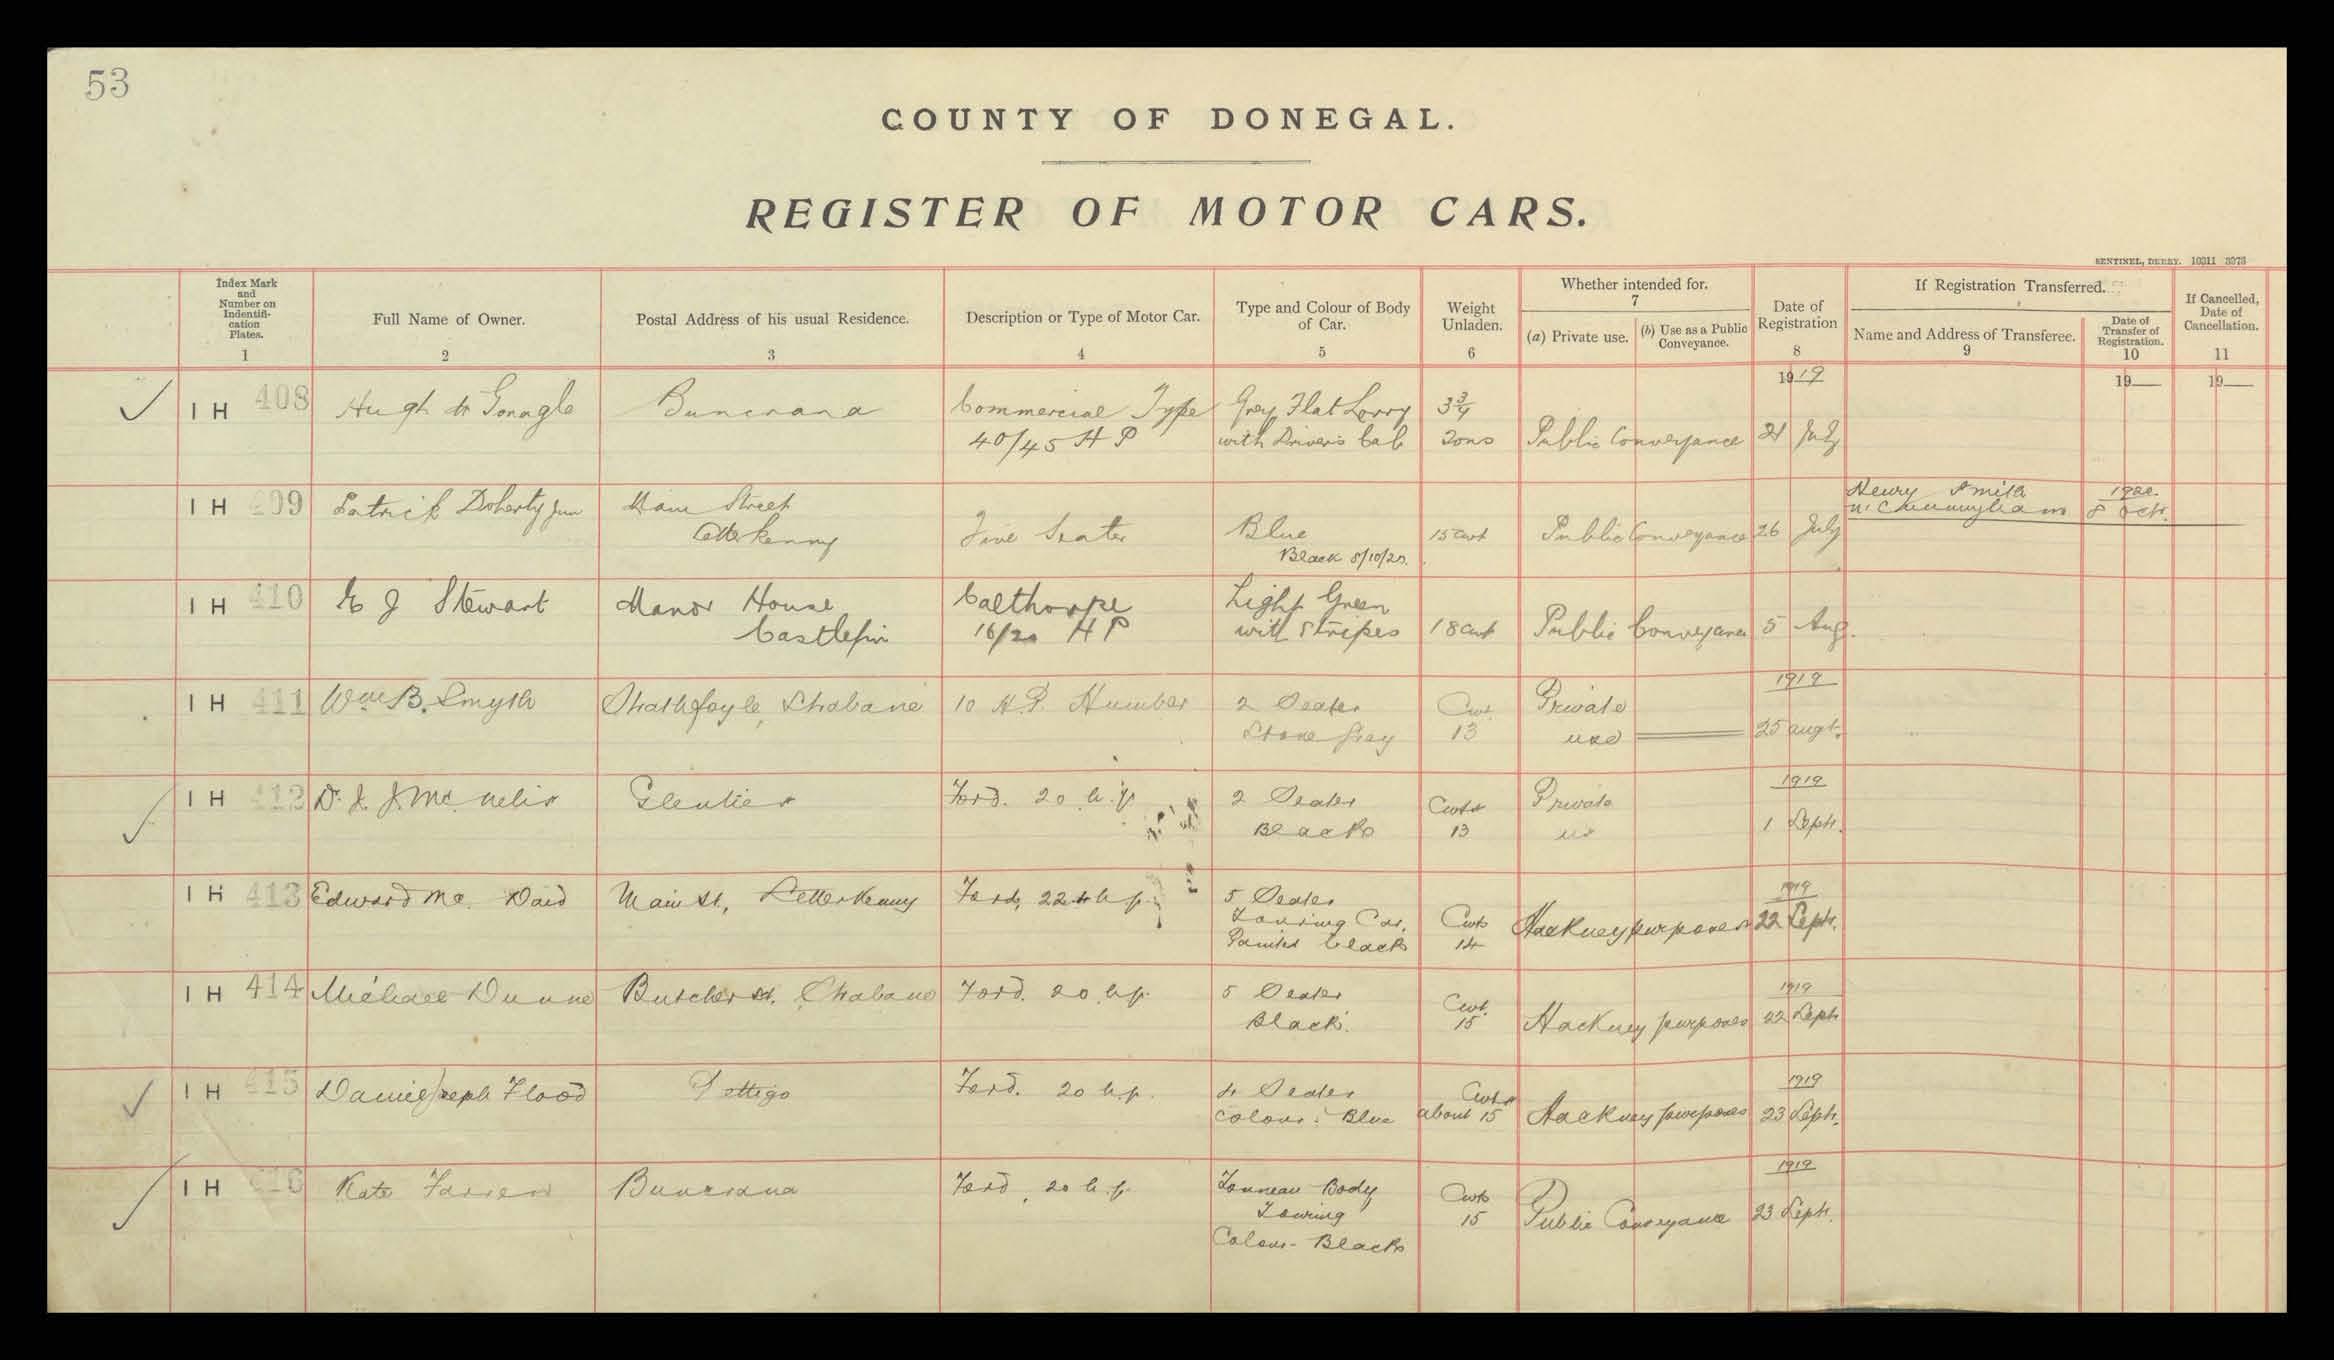 53
COUNTY OF DONEGAL.
REGISTER OF MOTOR CARS.
SENTINEL, DERRY. 10311 3373
Index Mark and Number on Indentifi-cation Plates. 1
Full Name of Owner. 2
Postal Address of his usual Residence. 3
Description or Type of Motor Car. 4
Type and Colour of Body of Car. 5
Weight Unladen. 6
Whether intended for. 7
(a) Private use.
(b) Use as a Public Conveyance.
Date of Registration 8
If Registration Transferred.
Name and Address of Transferee. 9
Date of Transfer of Registration. 10
If Cancelled, Date of Cancellation. 11
1919 19 19
I H 408 Hugh Mc Gonagle Buncrana Commercial Type Grey Flat Lorry 3 3/4
40/45 H P with Drivers Cab Tons Public Conveyance 21 July
I H 409 Patrick Doherty Jun Main Street Henry Smith 1920.
Letterkenny Five Seater Blue 15 cwt Public Conveyance 26 July 8 Oct.
Black 8/10/20.
I H 410 E J Stewart Manor House Calthorpe Light Green
Castlefin 16/20 H P with Stripes 18 cwt Public Conveyance 5 Aug.
I H 411 Wm B. Smyth Strathfoyle, Strabane 10 H.P. Humber 2 Seater Cwt. Private 1919
Stone Grey 13 use 25 augt.
I H 412 Dr. J. J. Mc Nelis Glenties Ford. 20 h.p. 2 Seater Cwts Private 1919
Black 13 use 1 Sept.
I H 413 Edward Mc. Daid Main St., Letterkenny Ford, 22 h.p. 5 Seater 1919
Touring Car, Cwts Hackney purposes 22 Sept.
Painted black 14
I H 414 Michael Dunne Butcher St. Strabane Ford. 20 h.p. 5 Seater Cwt. 1919
Black. 15 Hackney purposes 22 Sept
I H 415 Daniel Joseph Flood Pettigo Ford. 20 h.p. 4 Seater Cwts 1919
Colour: Blue about 15 Hackney purposes 23 Sept.
I H 416 Kate Farren Buncrana Ford, 20 h.p. Tonneau Body Cwts 1919
Touring 15 Public Conveyance 23 Sept.
Colour - Black